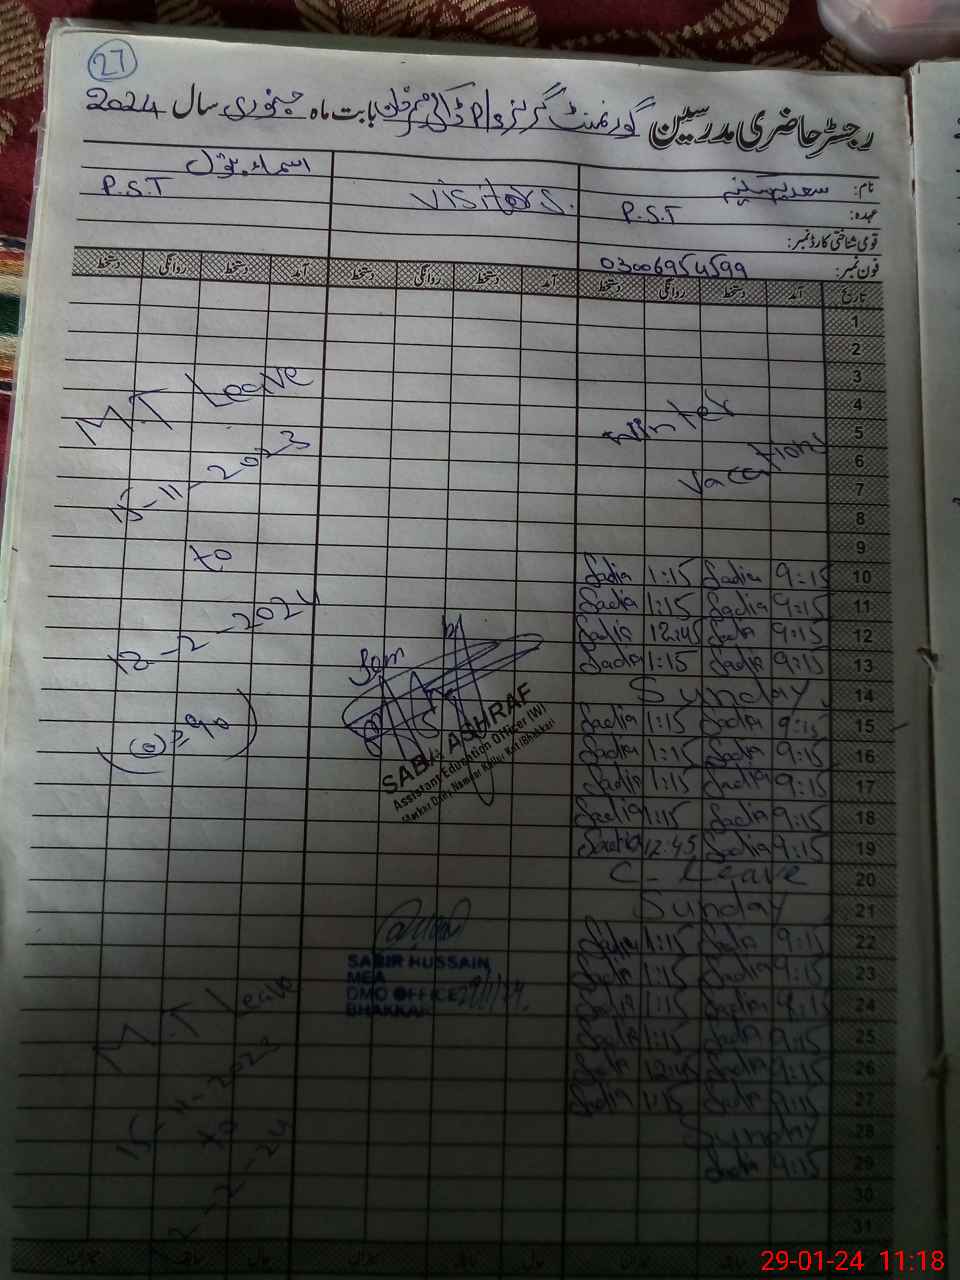 27
رجسٹر حاضری مدرسین گورنمنٹ گرلز P/ بابت ماہ جنوری سال 2024
نام: سعدیہ
عہدہ: P.S.T
قومی شناختی کارڈ نمبر:
فون نمبر: 03006954599
visitors.
اسماء بتول
P.S.T
تاریخ آمد دستخط روانگی دستخط آمد دستخط روانگی دستخط آمد دستخط روانگی دستخط
1
2
3
4
5
6
7
8
9
Winter
Vacations
10 9:15 Sadia 1:15 Sadia
11 9:15 Sadia 1:15 Sadia
12 9:15 Sadia 12:45 Sadia
13 9:15 Sadia 1:15 Sadia
14 Sunday
15 9:15 Sadia 1:15 Sadia
16 9:15 Sadia 1:15 Sadia
17 9:15 Sadia 1:15 Sadia
18 9:15 Sadia 1:15 Sadia
19 9:15 Sadia 12:45 Sadia
20 C- Leave
21 Sunday
22 9:15 Sadia 1:15 Sadia
23 9:15 Sadia 1:15 Sadia
24 9:15 Sadia 1:15 Sadia
25 9:15 Sadia 1:15 Sadia
26 9:15 Sadia 12:45 Sadia
27 9:15 Sadia 1:15 Sadia
28 Sunday
29 9:15 Sadia
30
31
SABA ASHRAF
Assistant Education Officer (W)
Markaz Kotla (Bhakkar)
SABIR HUSSAIN
MEA
DMO OFFICE
BHAKKAR
M.T Leave
15-11-2023
to
12-2-2024
= 90
M.T Leave
15-11-2023
to
2-24
29-01-24 11:18